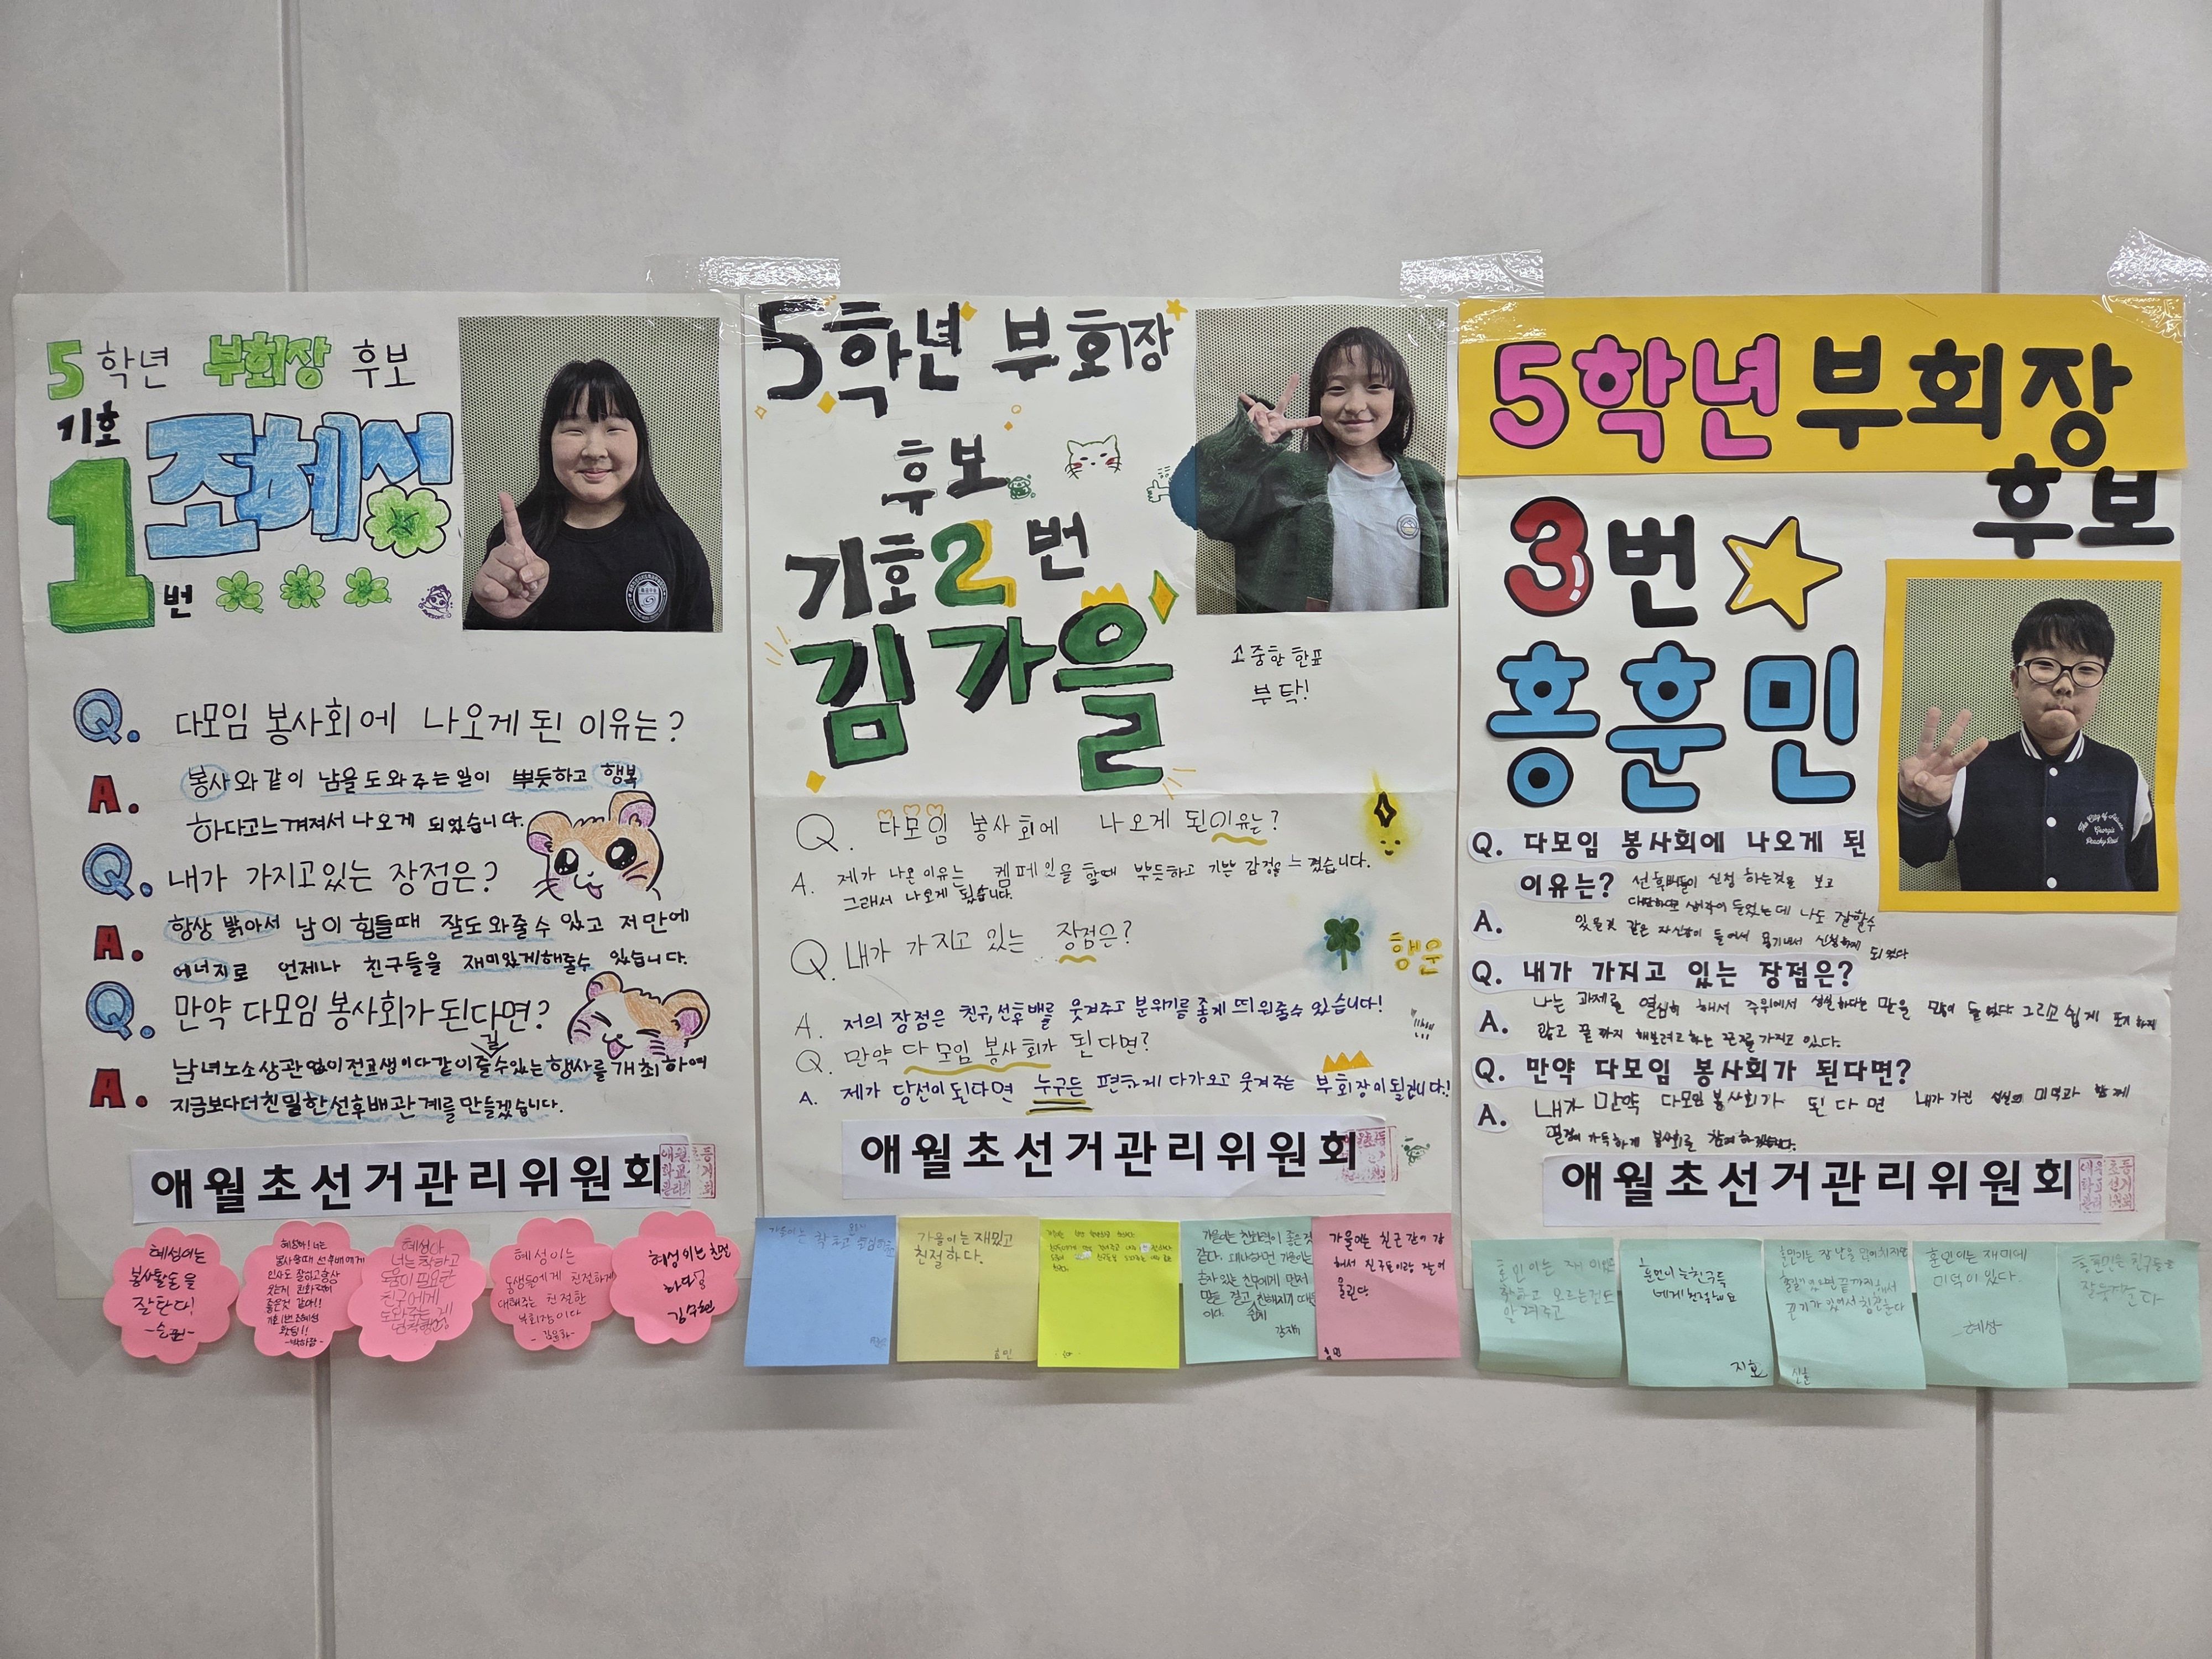 5학년 부회장 후보
기호
1
번
조혜성
Q. 다모임 봉사회에 나오게 된 이유는?
A. 봉사와 같이 남을 도와주는 일이 뿌듯하고 행복
하다고 느껴져서 나오게 되었습니다.
Q. 내가 가지고 있는 장점은?
A. 항상 밝아서 남이 힘들때 잘 도와줄 수 있고 저만에
에너지로 언제나 친구들을 재미있게 해줄수 있습니다.
Q. 만약 다모임 봉사회가 된다면?
A. 남녀노소 상관없이 전교생이 다같이 즐길 수 있는 행사를 개최하여
지금보다 더 친밀한 선후배 관계를 만들겠습니다.
애월초선거관리위원회
혜성이는
봉사활동을
잘한다!
혜성아! 너는
봉사활때 선후배에게
인사도 잘하고 항상
웃는게
좋은것 같아!!
기호1번 조혜성
혜성아
너는 착하고
도움이 필요한
친구에게
도와주는 게
혜성이는
동생들에게 친절하게
대해주는 친절한
부회장이다
혜성이는 친절
하다
5학년 부회장
후보
기호 2번
김가을
소중한 한표
부탁!
Q. 다모임 봉사회에 나오게 된 이유는?
A. 제가 나온 이유는 켐페인을 할때 뿌듯하고 기쁜 감정을 느꼈습니다.
그래서 나오게 됬습니다.
Q. 내가 가지고 있는 장점은?
행운
A. 저의 장점은 친구, 선후배를 웃겨주고 분위기를 좋게 띄워줄수 있습니다!
Q. 만약 다모임 봉사회가 된다면?
A. 제가 당선이 된다면 누구든 편하게 다가오고 웃겨주는 부회장이 될겁니다!
애월초선거관리위원회
가을이는 재밌고
친절하다.
효민
가을이는 친화력이 좋은것
같다. 왜냐하면 가을이는
혼자 있는 친구에게 먼저
말을 걸고 쉽게 친해지기 때문
이다.
가을이는 친근 같이 강
해서 친구들이랑 잘 어
울린다
5학년 부회장
후보
3번
홍훈민
Q. 다모임 봉사회에 나오게 된
이유는?
A. 선후배들이 신청 하는것을 보고
대단하다고 생각이 들었는데 나도 잘할수
있을것 같은 자신감이 들어서 용기내서 신청하게
되었다
Q. 내가 가지고 있는 장점은?
A. 나는 과제를 열심히 해서 주위에서 성실하다는 말을 많이 들었다 그리고 쉽게 포기 하지
않고 끝까지 해보려고 하는 끈기를 가지고 있다.
Q. 만약 다모임 봉사회가 된다면?
A. 내가 만약 다모임 봉사회가 된다면 내가 가진 성실의 미덕과 함께
열정이 가득하게 봉사회를 참여하겠습니다.
애월초선거관리위원회
훈민이는 친구들
에게 친절해요
지호
훈민이는 재미에
미덕이 있다.
혜성